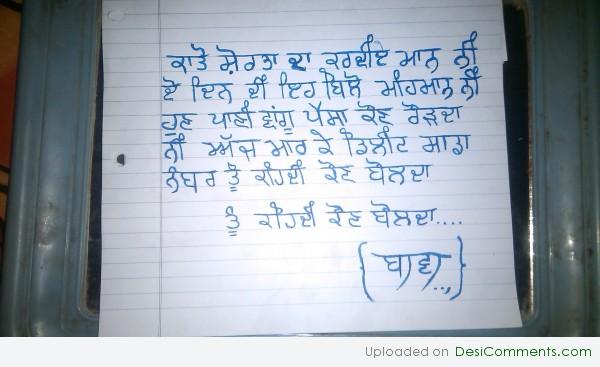 ਕਾਤੋ ਸ਼ੋਹਰਤਾ ਦਾ ਕਰਦੀਏ ਮਾਨ ਨੀ
ਦੋ ਦਿਨ ਦੀ ਇਹ ਬਿਲੋ ਮੇਹਮਾਨ ਨੀ
ਹੁਣ ਪਾਣੀ ਵਾਂਗੂ ਪੈਸਾ ਕੌਣ ਰੋੜਦਾ
ਨੀ ਅੱਜ ਮਾਰ ਕੇ ਡਿਲੀਟ ਸਾਡਾ
ਨੰਬਰ ਤੂੰ ਕਹਿੰਦੀ ਕੌਣ ਬੋਲਦਾ
ਤੂੰ ਕਹਿੰਦੀ ਕੌਣ ਬੋਲਦਾ....
{ਬਾਵਾ..,}
Uploaded on DesiComments.com